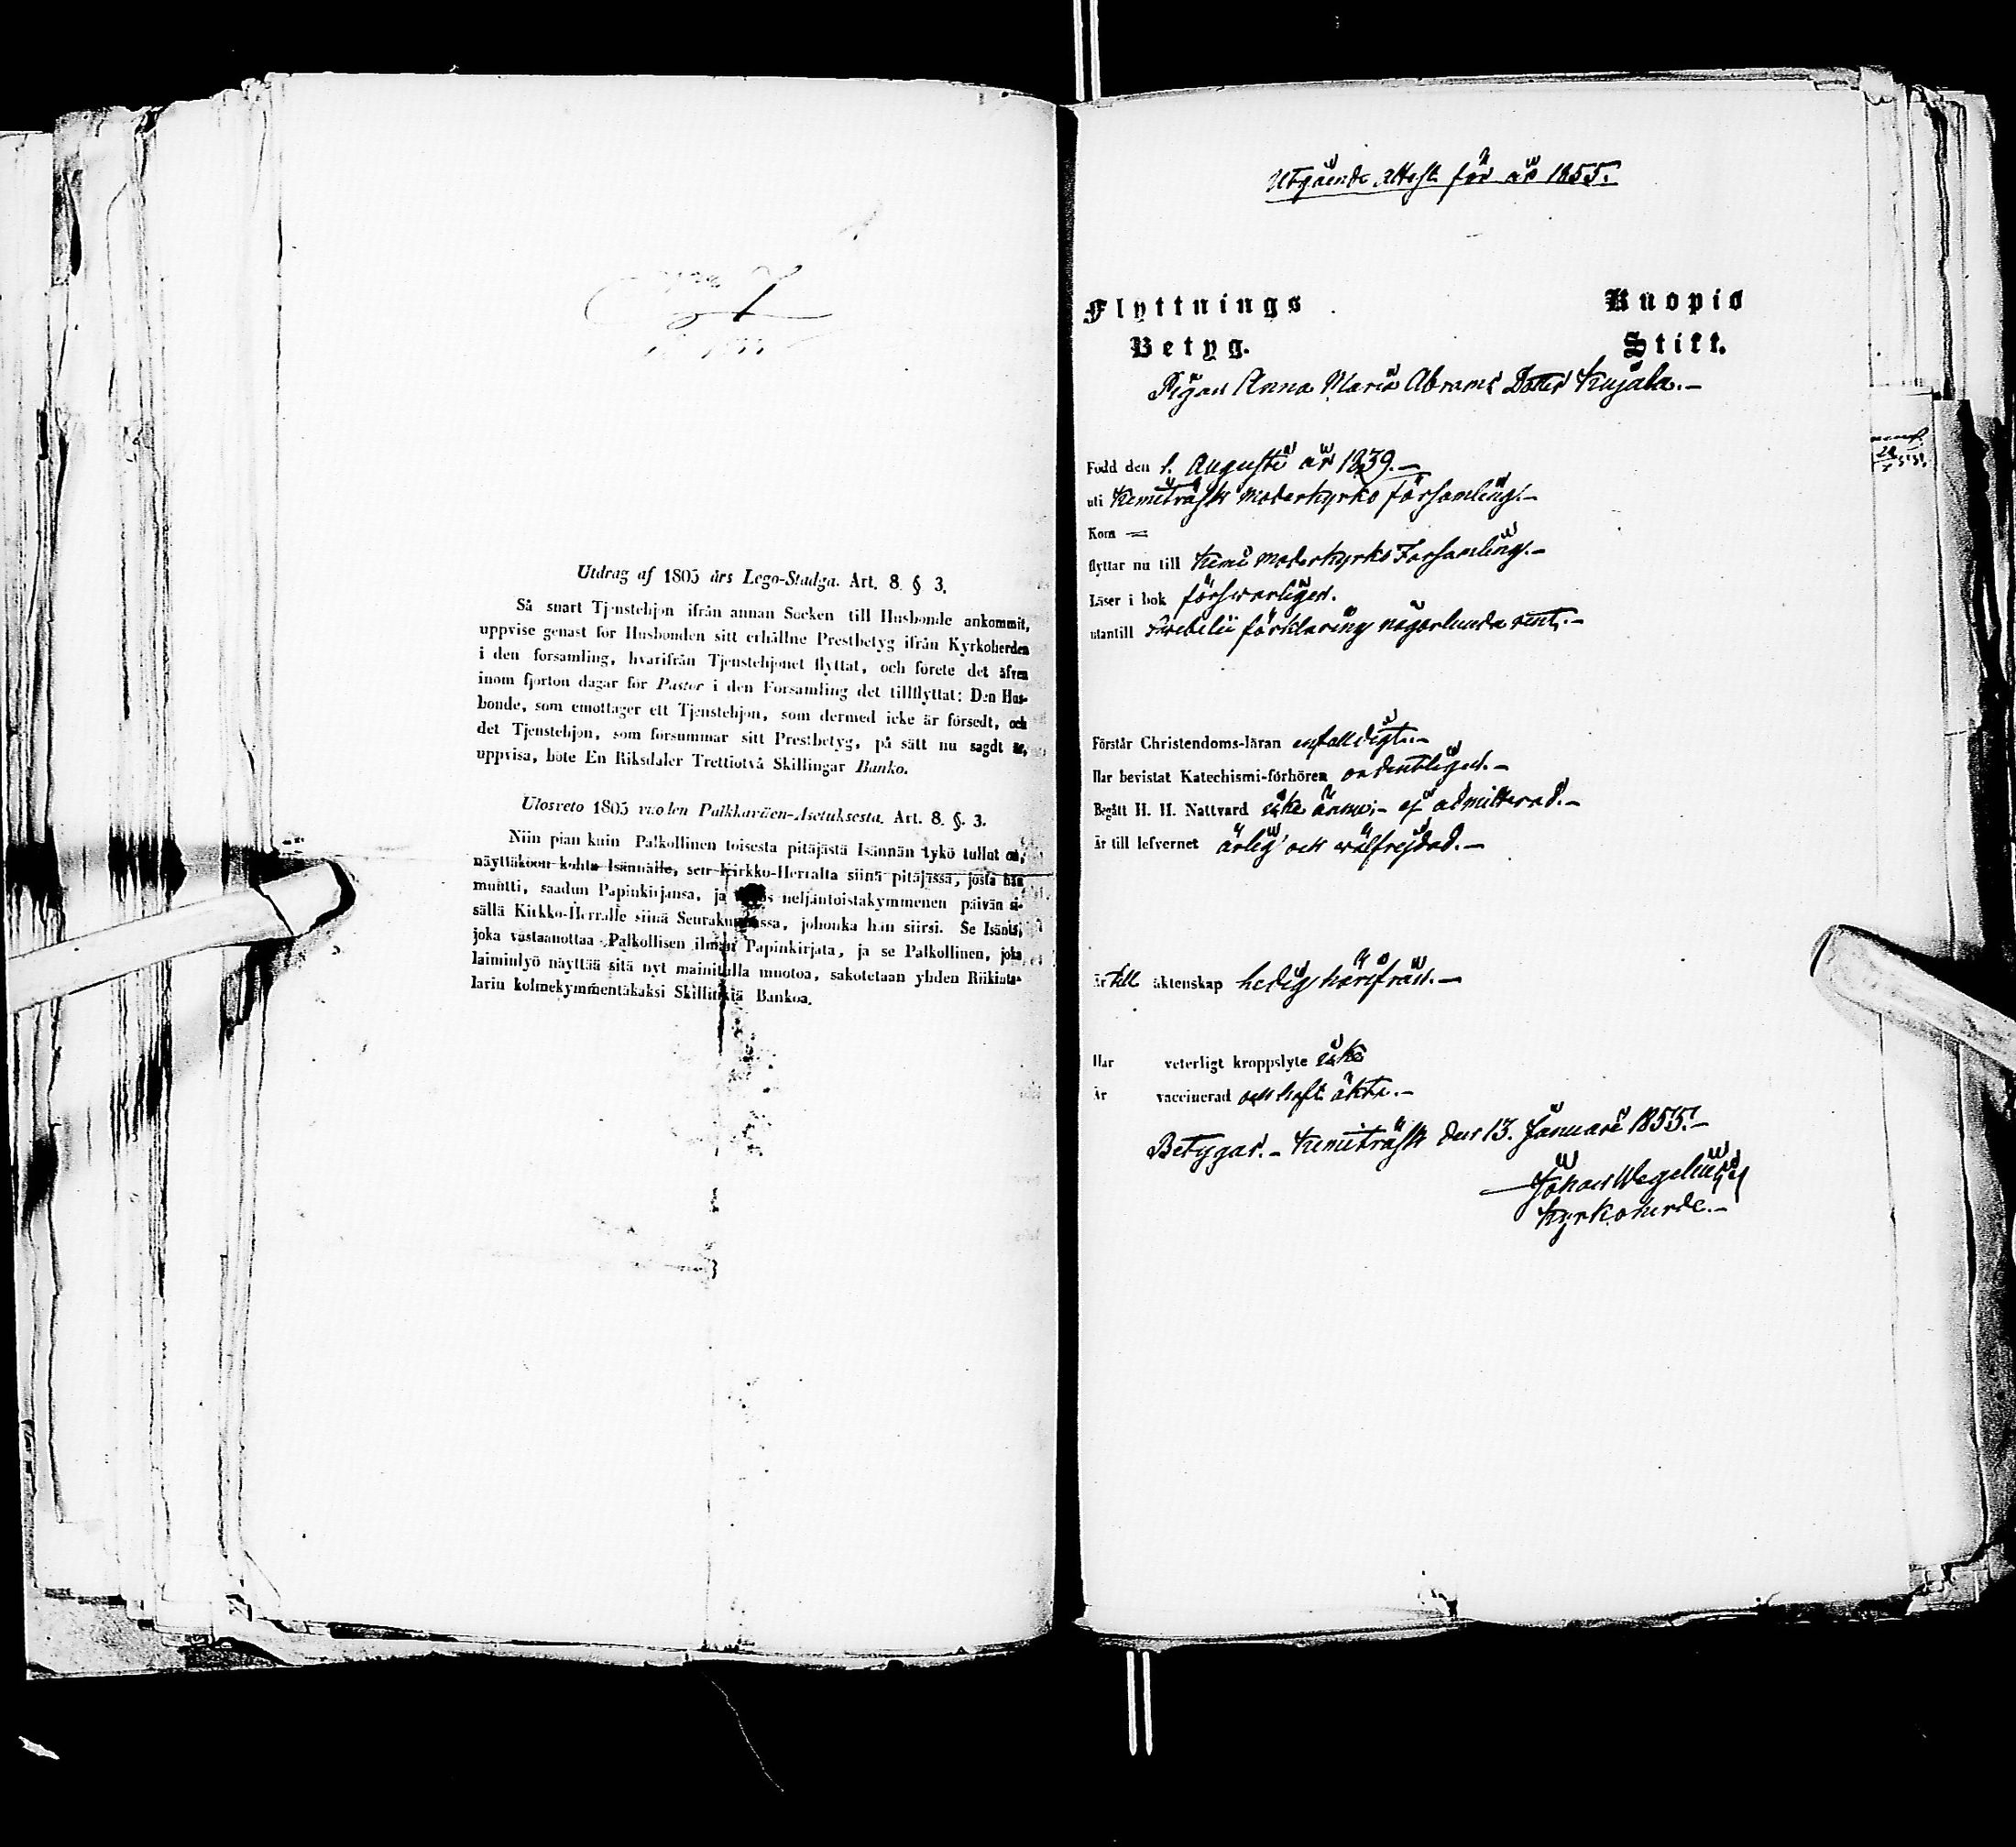 Utdrag af 1805 års Lego-Stadga. Art. 8 § 3.
Så snart Tjenstehjon ifrån annan Socken till Husbonde ankommit,
uppvise genast för Husbonden sitt erhållne Prestbetyg ifrån Kyrkoherden
i den forsamling, hvarifrån Tjenstehjonet flyttat, och förete det äfven
inom fjorton dagar för Pastor i den Forsamling det tillflyttat: Den Hus-
bonde, som emottager ett Tjenstehjon, som dermed icke är försedt, och
det Tjenstehjon, som försummar sitt Prestbetyg, på sätt nu sagdt är,
uppvisa, böte En Riksdaler Trettiotvå Skillingar Banko.
Ulosveto 1805 vuolen Palkkaväen-Asetuksesta. Art. 8. §. 3.
Niin pian kuin Palkollinen toisesta pitäjästä Isännän tykö tullut on,
näyttäköön kohta Isännälle, sen Kirkko-Herralta siinä pitäjässä, josta hän
muutti, saadun Papinkirjansa, ja neljäntoistakymmenen päivän si-
sällä Kirkko-Herralle siinä Seurakunnassa, johonka hän siirsi. Se Isäntä,
joka vastaanottaa Palkollisen ilman Papinkirjata, ja se Palkollinen, joka
laiminlyö näyttää sitä nyt mainitulla muotoa, sakotetaan yhden Riikinta-
larin kolmekymmentäkaksi Skillinkiä Bankoa.
Utgående Attest för år 1855.
Flyttnings Kuopio
Betyg. Stift.
Pigan Anna Maria Abrams Dotter Kujala.-
Född den 1. Augusti år 1839.-
uti Kemiträsk Moderkyrko församling.-
Kom =
flyttar nu till Kemi Moderkyrko Församling.-
Läser i bok försvarligen.
utantill Svebelii förklaring någorlunda rent.-
Förstår Christendoms-läran enfalldigt.-
Har bevistat Katechismi-förhören ordentligen.-
Begått H. H. Nattvard icke ännu;- ej admitterad.-
Är till lefvernet ärlig och välfrejdad.-
Är till äktenskap ledig härifrån.-
Har veterligt kroppslyte icke
Är vaccinerad och haft äkta.-
Betygar.- Kemiträsk den 13. Januari 1855.-
Johan Wegelius
Kyrkoherde.-